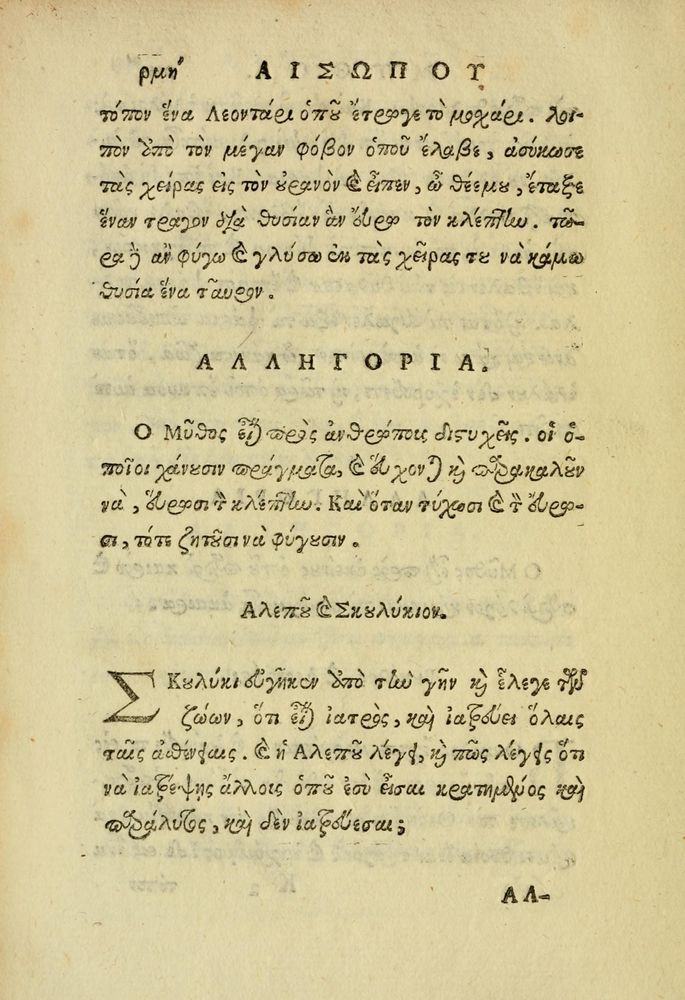 ρμηʹ ΑΙΣΩΠΟΥ
τόπον ἕνα Λεοντάρι ὁποῦ ἔτρωγε τὸ μοχάρι. λοι-
πὸν ἀπὸ τὸν μέγαν φόβον ὁποῦ ἔλαβε, ἀσύκωσε
τὰς χεῖρας εἰς τὸν οὐρανὸν καὶ εἶπεν, ὦ θέεμου, ἔταξα
ἕναν τράγον διὰ θυσίαν ἂν εὕρω τὸν κλέπτην. τώ-
ρα δὲ ἂν φύγω καὶ γλύσω ἐκ τὰς χεῖρας του νὰ κάμω
θυσία ἕνα ταῦρον.
ΑΛΛΗΓΟΡΙΑ.
Ο Μῦθος εἶναι πρὸς ἀνθρώποις δυστυχεῖς. οἱ ὁ-
ποῖοι χάνουσιν πράγματα, καὶ εὔχονται καὶ παρακαλοῦν
νὰ, εὕρωσι τὸν κλέπτην. Καὶ ὅταν τύχωσι καὶ τὸν εὕρω-
σι, τότε ζητοῦσι νὰ φύγουσιν.
Αλεποῦ καὶ Σκουλύκιον.
ΣΚουλύκι εὐγῆκεν ἀπὸ τὴν γῆν καὶ ἔλεγε τῶν
ζώων, ὅτι εἶναι ἰατρὸς, καὶ ἰατρεύει ὅλαις
ταῖς ἀσθένειαις. καὶ ἡ Αλεποῦ λέγει, καὶ πῶς λέγεις ὅτι
νὰ ἰατρέψης ἄλλοις ὁποῦ ἐσὺ εἶσαι κρατημένος καὶ
παράλυτος, καὶ δὲν ἰατρεύεσαι;
ΑΛ-